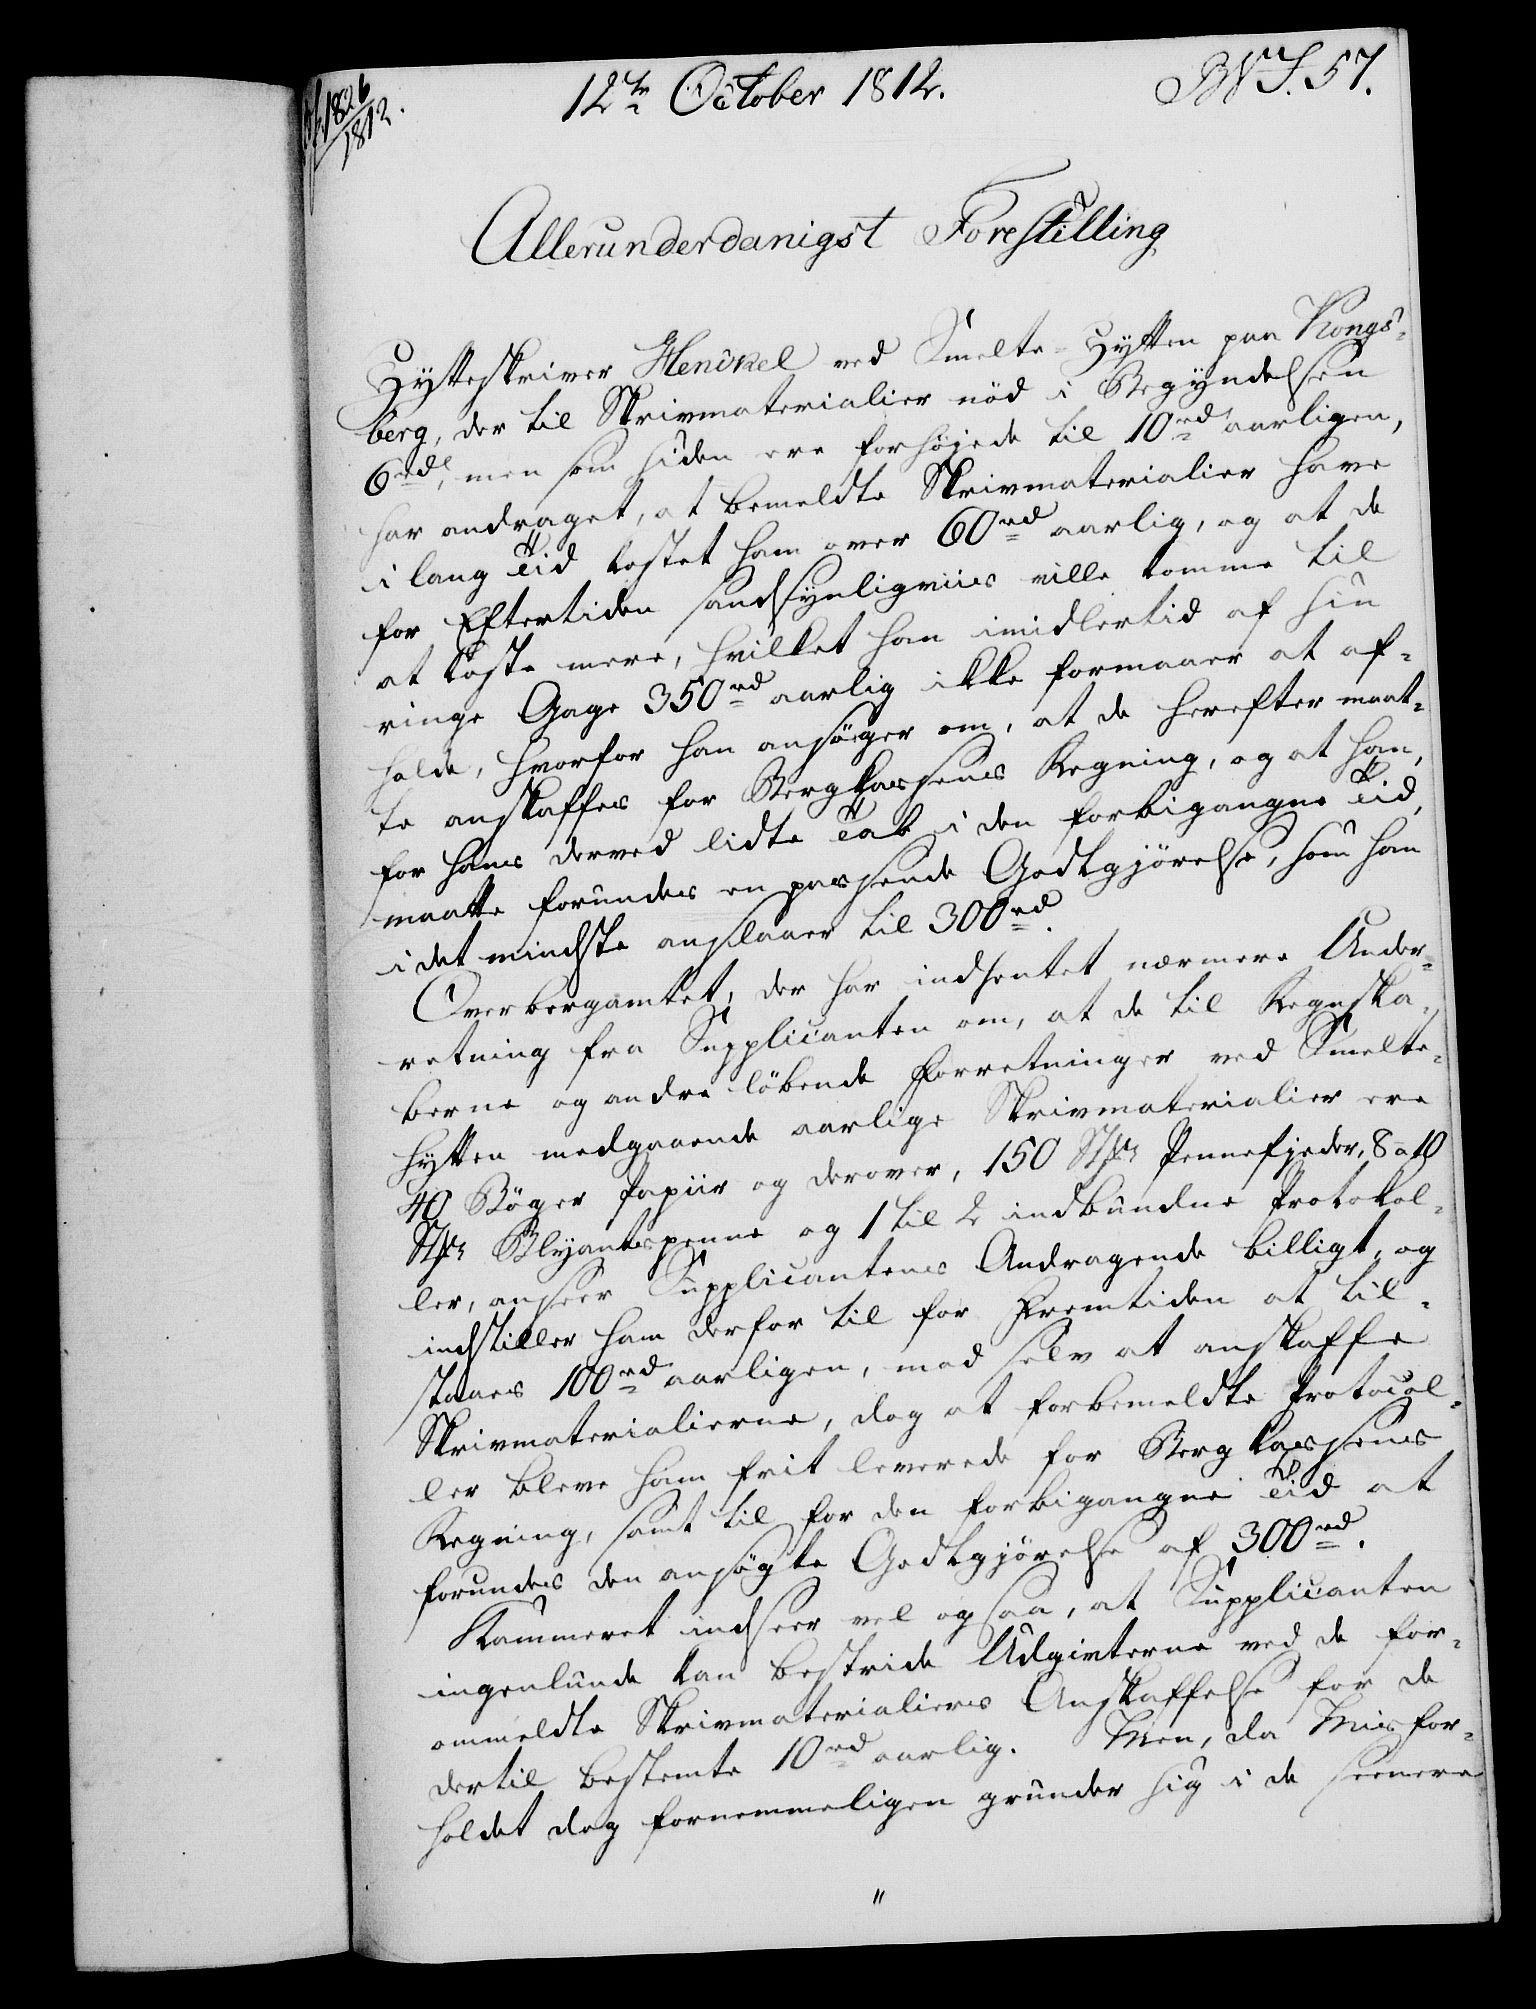 1826
1812.
12te October 1812.
BWS. 57.
Allerunderdanigst Forestilling
Hytteskriver Henckel ved Smelte-Hytten paa Kongs-
berg, der til Skrivmaterialier nød i Begyndelsen
6rd, men som siden ere forhøjede til 10rd aarligen,
har andraget, at bemeldte Skrivmaterialier have
i lang Tid kostet ham over 60rd aarlig, og at de
for Eftertiden sandsynligviis ville komme til
at koste mere, hvilket han imidlertid af sin
ringe Gage 350rd aarlig ikke formaaer at af-
holde, hvorfor han ansøger om, at de herefter maat-
te anskaffes for Bergkassens Regning, og at ham,
for hans derved lidte Tab i den forbigangne Tid,
maatte forundes en passende Godtgjörelse, som han
i det mindste anslaaer til 300rd.
Overbergamtet, der har indhentet nærmere Under-
retning fra Supplicanten om, at de til Regnska-
berne og andre løbende Forretninger ved Smelte-
hytten medgaaende aarlige Skrivmaterialier ere
40 Bøger Papiir og derover, 150 Stkr Pennefjeder, 8 a 10
Stkr Blyantspenne og 1 til 2 indbundne Protokol-
ler, anseer Supplicantens Andragende billigt, og
indstiller ham derfor til for Fremtiden at til-
staaes 100rd aarligen, mod selv at anskaffe
Skrivmaterialierne, dog at forbemeldte Protocol-
ler bleve ham frit leverede for Bergkassens
Regning, samt til for den forbigangne Tid at
forundes den ansøgte Godtgjörelse af 300rd.
Kammeret indseer vel ogsaa, at Supplicanten
ingenlunde kan bestride Udgivterne ved de for-
ommeldte Skrivmaterialiers Anskaffelse for de
dertil bestemte 10rd aarlig. Men, da Misfor-
holdet dog fornemmeligen grunder sig i de seenere
"